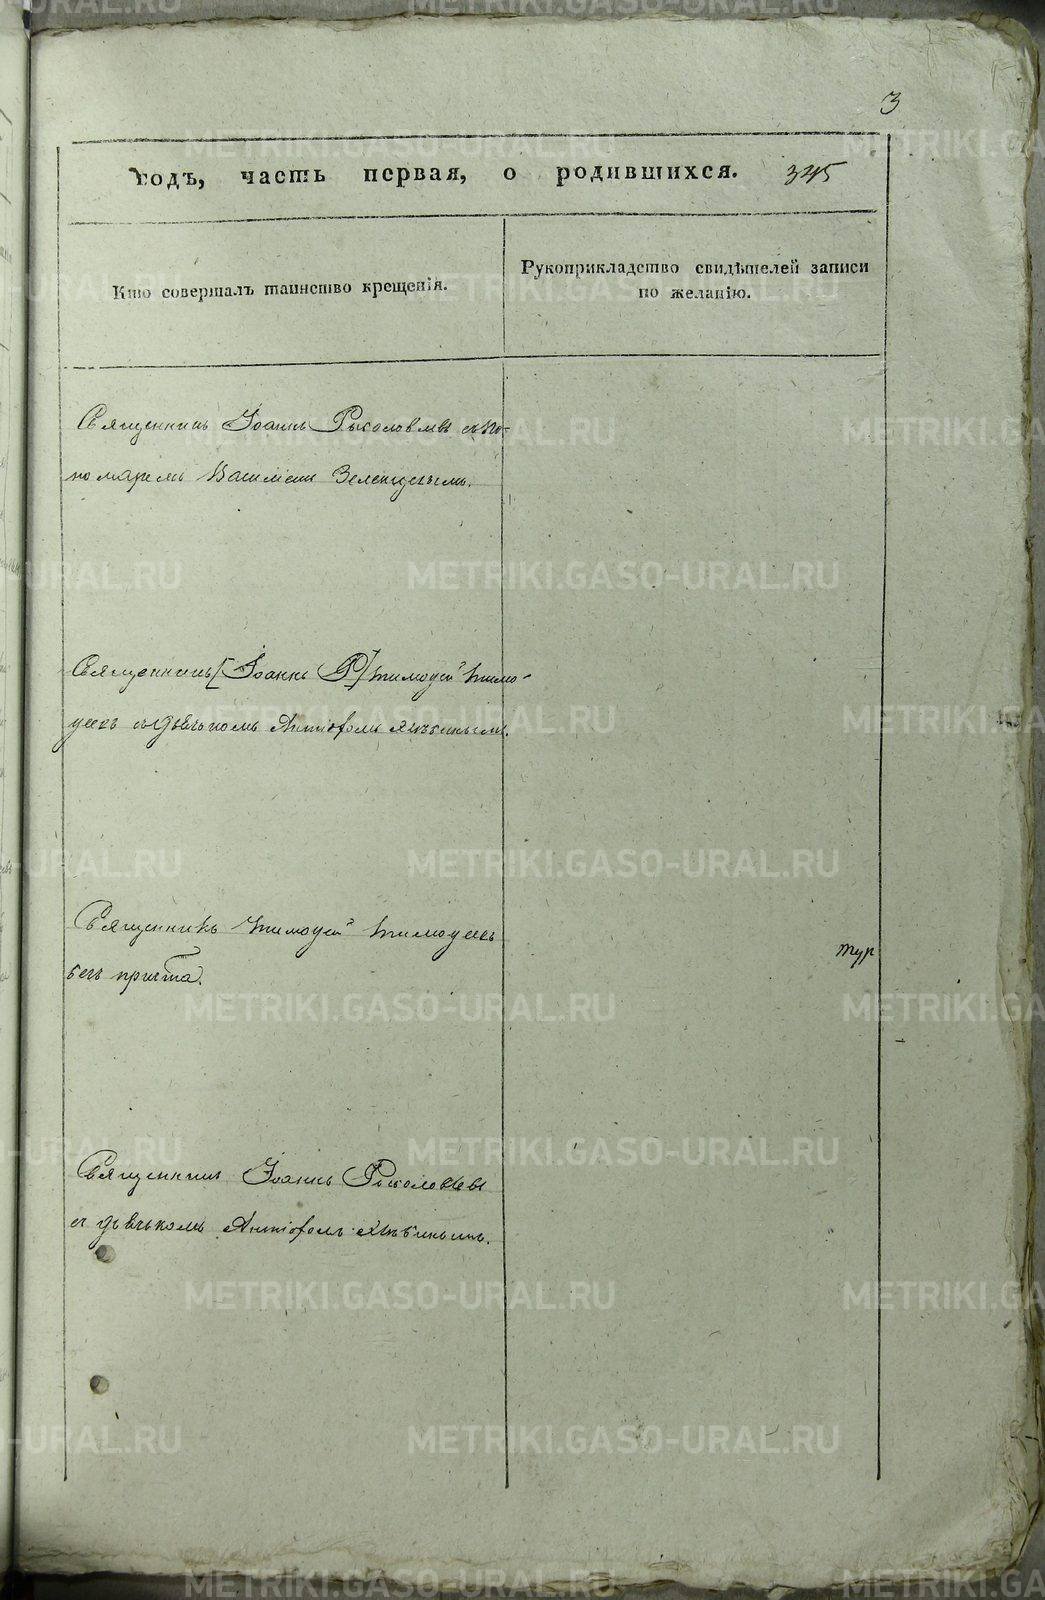 3
годъ, часть первая, о родившихся. 345
Кто совершалъ таинство крещенія.
Рукоприкладство свидѣтелей записи
по желанію.
Священникъ Іоаннъ съ по-
номаремъ Василіемъ
Священникъ [Іоаннъ Р] Тимофей Тимо-
феевъ съ дьячкомъ
Священникъ Тимофей Тимофеевъ
безъ причта.
тур
Священникъ Іоаннъ
съ дьячкомъ
METRIKI.GASO-URAL.RU